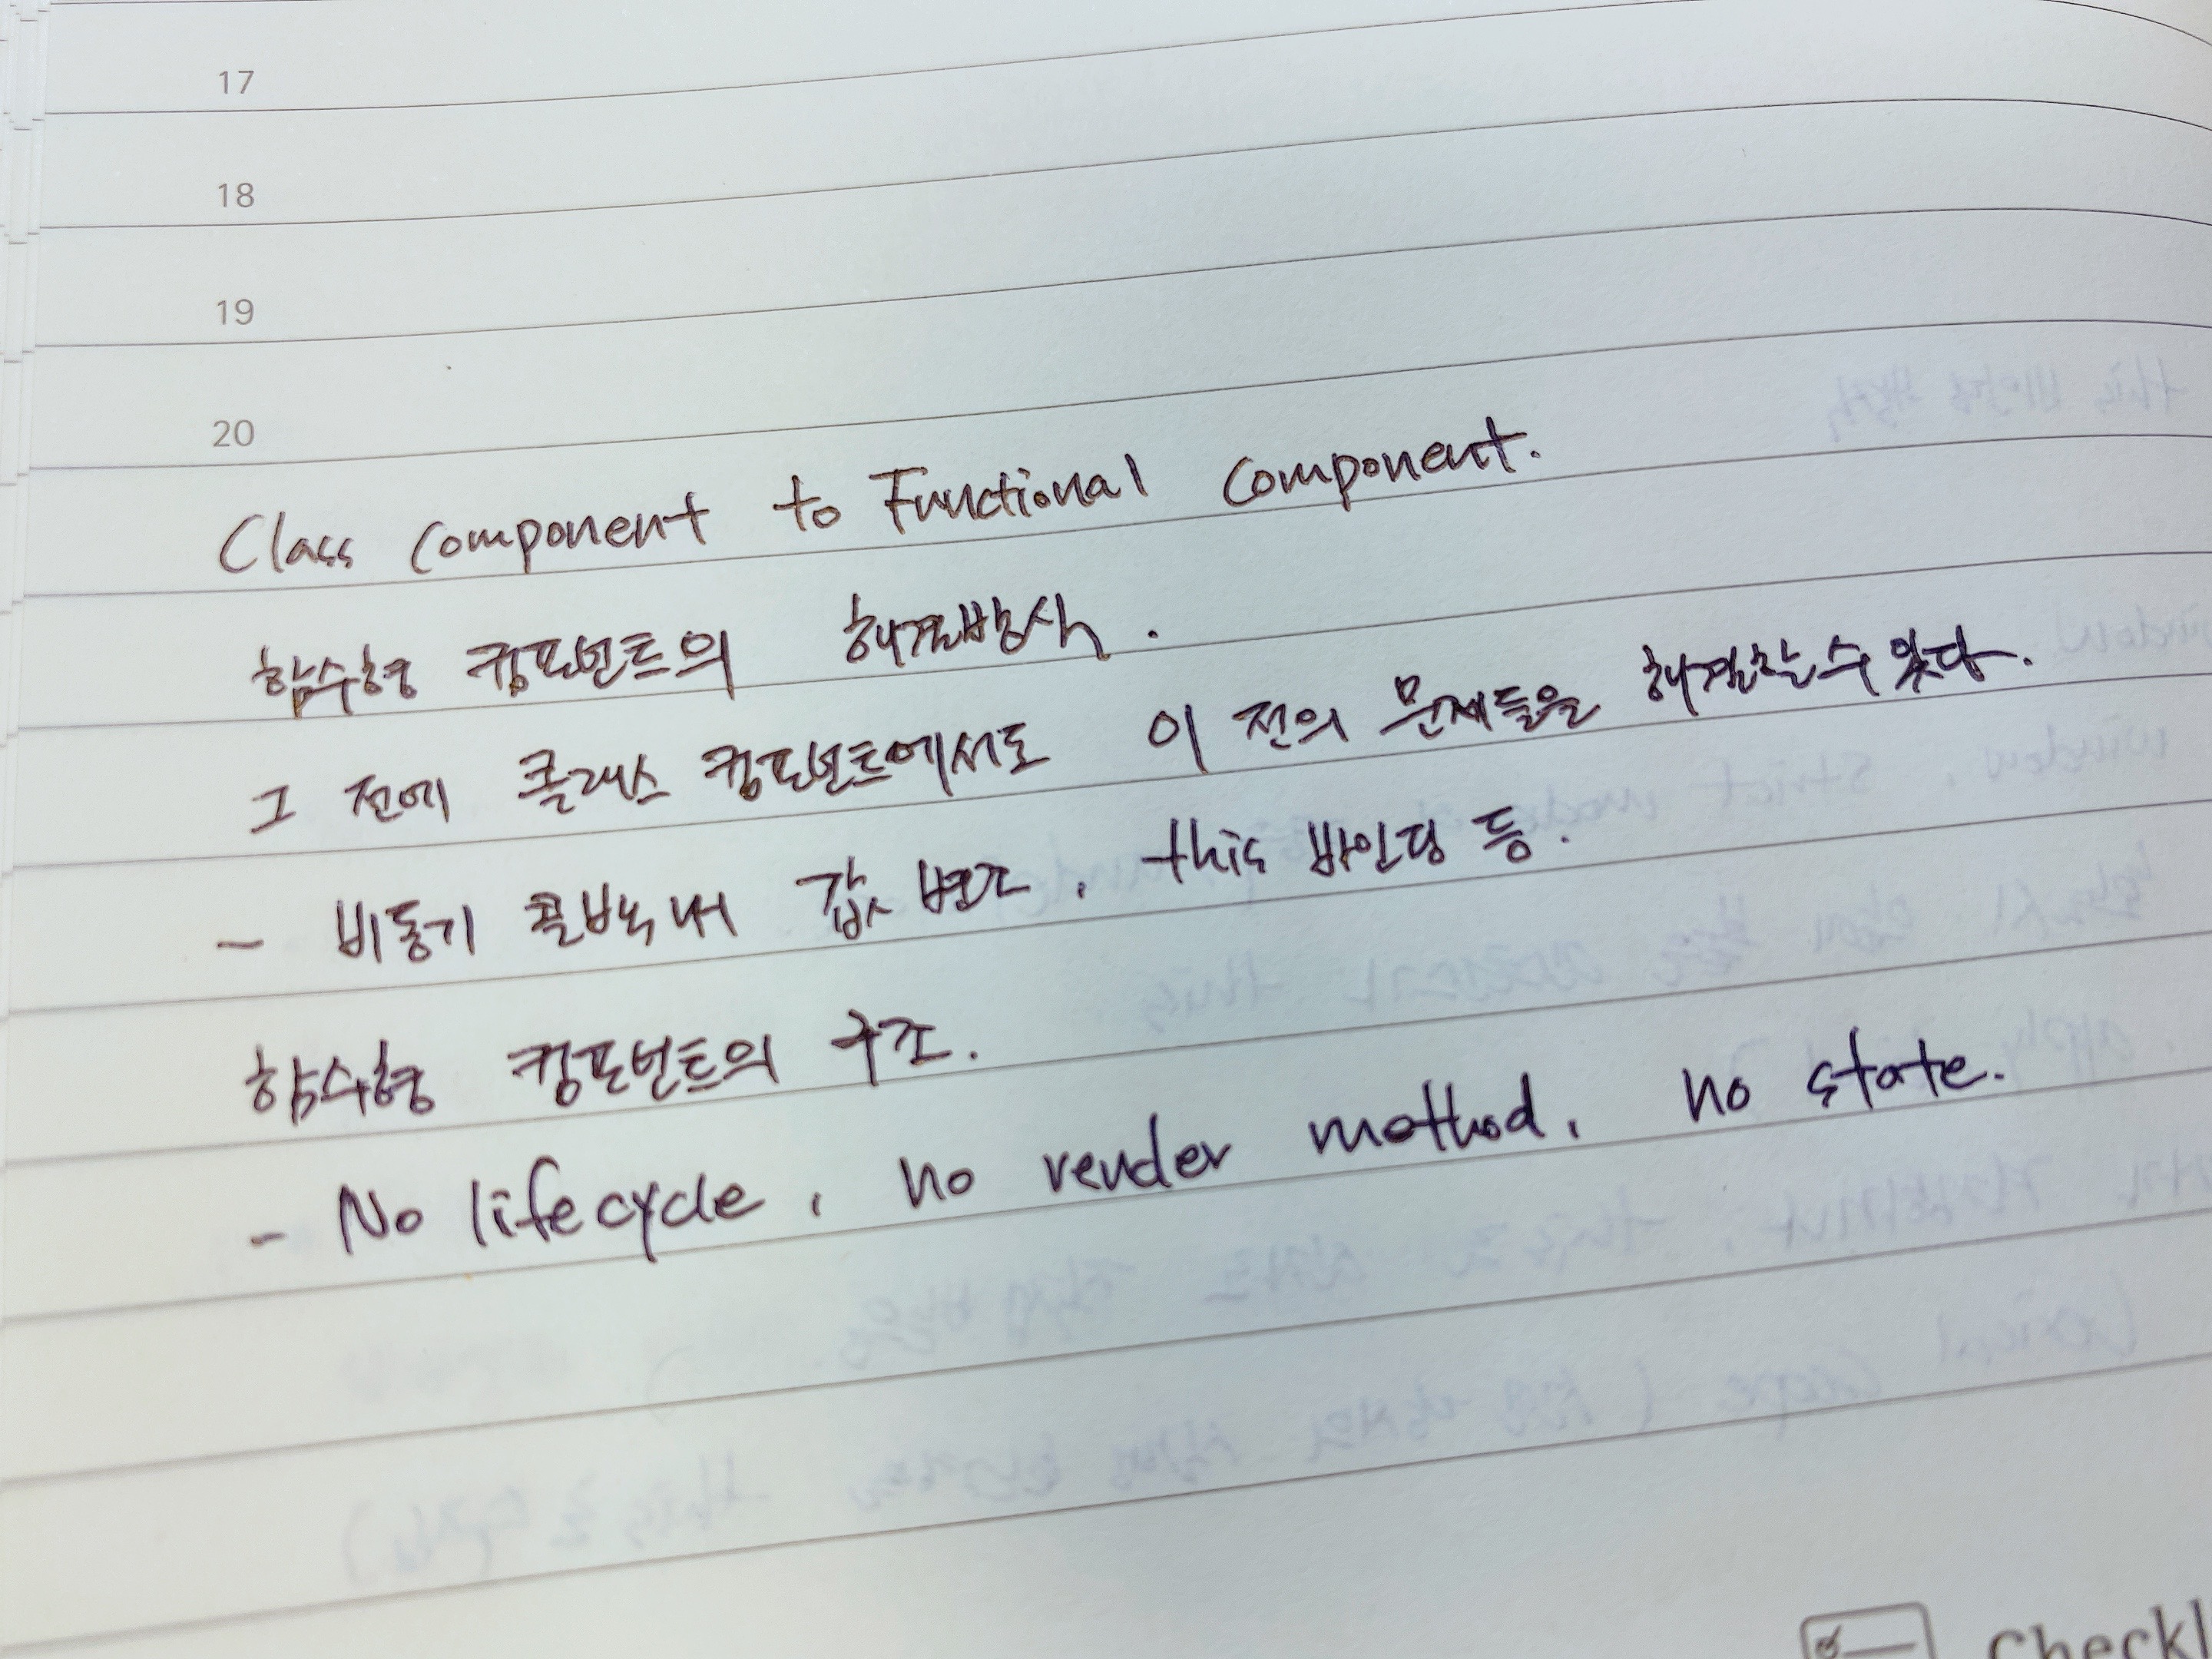 17
18
19
20
Class Component to Functional Component.
함수형 컴포넌트의 해결방식.
그 전에 클래스 컴포넌트에서도 이 전의 문제들을 해결할 수 있다.
- 비동기 콜백 내 값 변조, this 바인딩 등.
함수형 컴포넌트의 구조.
- No lifecycle, no render method, no state.
Checkl